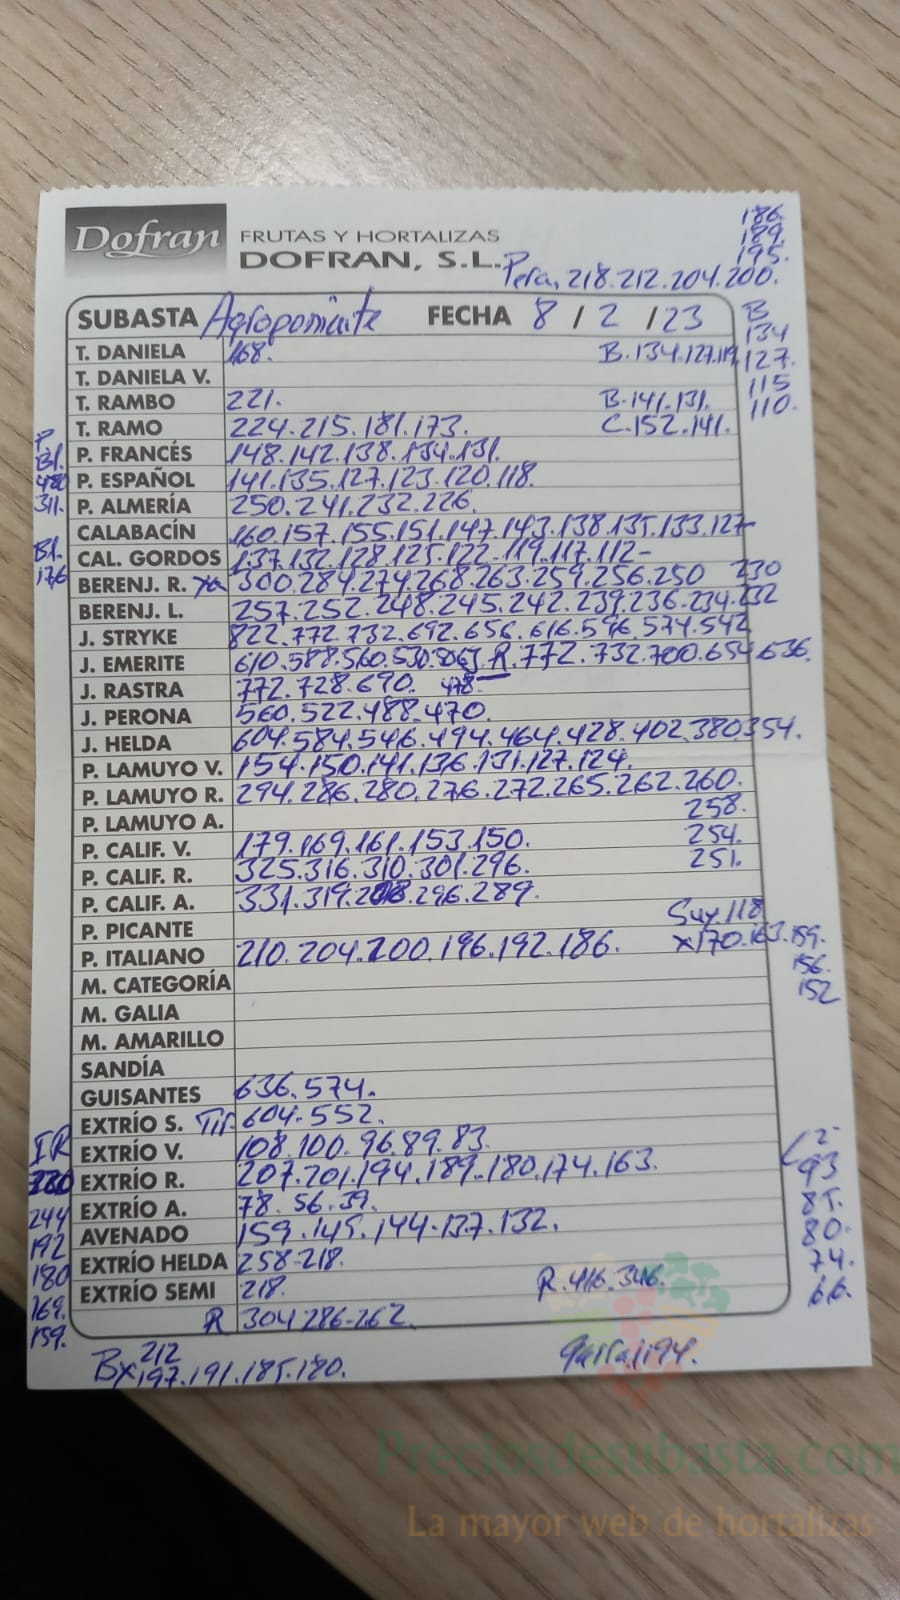 Dofran FRUTAS Y HORTALIZAS
DOFRAN, S.L.
186.
189.
195.
Pera, 218.212.204.200.
SUBASTA Agroponiente FECHA 8 / 2 / 23
B
134
127.
115
110.
T. DANIELA 168. B.134.127.119
T. DANIELA V.
T. RAMBO 221. B.141.131.
T. RAMO 224.215.181.173. C.152.141.
P. FRANCÉS 148.142.138.134.131.
P. ESPAÑOL 141.135.127.123.120.118.
P. ALMERÍA 250.241.232.226.
P
Bl.
311.
CALABACÍN 160.157.155.151.147.143.138.135.133.127-
CAL. GORDOS 137.132.128.125.122-119.117.112-
Bl.
176
BERENJ. R. 300.284.274.268.263.259.256.250 230
BERENJ. L. 257.252.248.245.242.239.236.234.232
J. STRYKE 822.772.732.692.656.616.596.574.542
J. EMERITE 610.588.560.530.506 R.772.732.700.654.636.
J. RASTRA 772.728.690. 478.
J. PERONA 560.522.488.470.
J. HELDA 604.584.546.494.464.428.402.380.354.
P. LAMUYO V. 154.150.141.136.131.127.124.
P. LAMUYO R. 294.286.280.276.272.265.262.260.
258.
P. LAMUYO A.
P. CALIF. V. 179.169.161.153.150. 254.
P. CALIF. R. 325.316.310.301.296. 251.
P. CALIF. A. 331.319. 296.289.
P. PICANTE Suy.118
P. ITALIANO 210.204.200.196.192.186. x170.163.159.
156.
152
M. CATEGORÍA
M. GALIA
M. AMARILLO
SANDÍA
GUISANTES 636.574.
EXTRÍO S. Tir. 604-552.
EXTRÍO V. 108.100.96.89.83.
EXTRÍO R. 207.201.194.189.180.174.163.
EXTRÍO A. 78.56.39.
AVENADO 159.149.144.137.132.
EXTRÍO HELDA 258-218.
EXTRÍO SEMI 218. R.416.346.
R 304 286-262.
IR
244
192
180
169.
159.
93
85.
80.
74.
66.
212
Bx197.191.185.180.
Preciosdesubasta.com
La mayor web de hortalizas